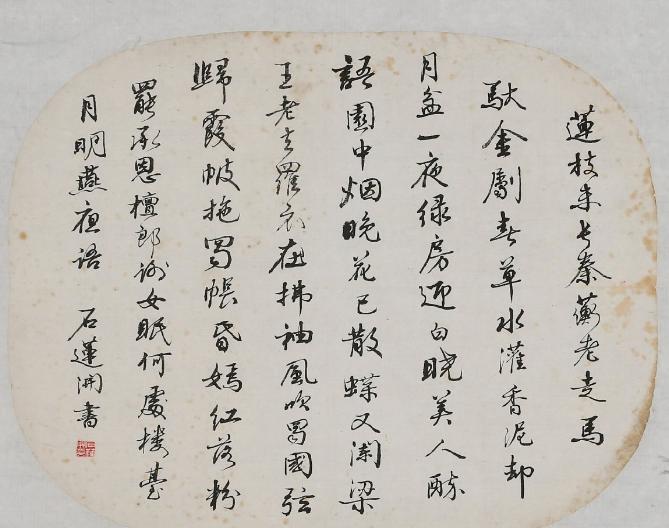 蓮枝未长秦蘅老走馬
馱金劚春草水灌香泥却
月盆一夜绿房迎白晓美人醉
語園中烟晚花已散蝶又阑梁
王老去羅衣在拂袖風吹蜀國弦
歸霞帔拖蜀帳昏嫣红落粉
罷承恩檀郎谢女眠何處楼臺
月明燕夜语 石蓮開書